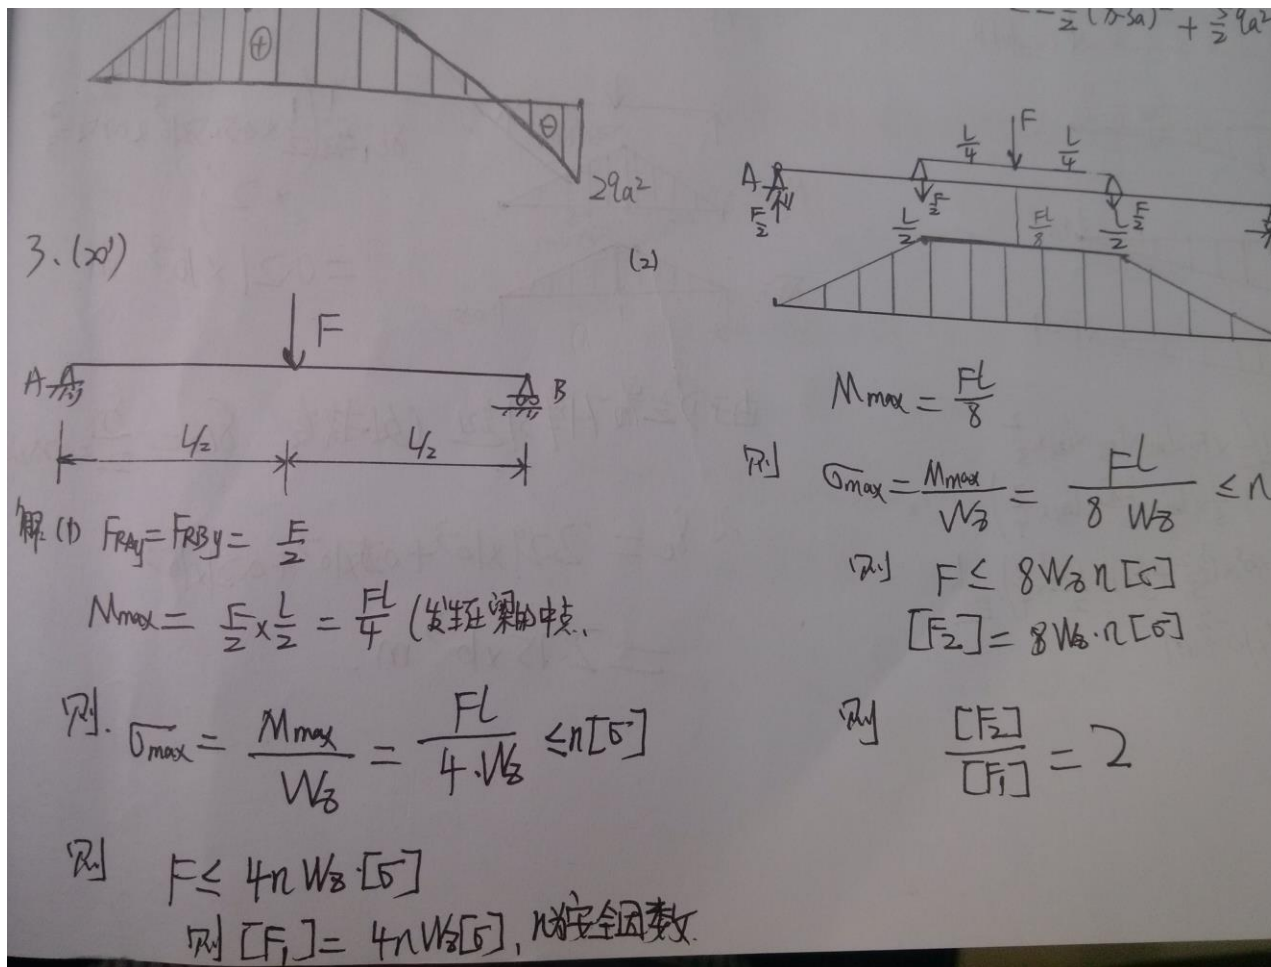 ⊕
⊖
2qa²
3、(20')
F
A
B
L/2 L/2
解 (1) FRAy = FRBy = F/2
Mmax = F/2 × L/2 = FL/4 (发生在梁的中点、
则. σmax = Mmax/Wz = FL/4·Wz ≤ n[σ]
则 F ≤ 4nWz·[σ]
则 [F₁] = 4nWz[σ], n为安全因数
(x-3a)² + 5/2 qa²
(2)
F
L/4 L/4
A
F/2 F/2 F/2
L/2 FL/8 L/2
Mmax = FL/8
则 σmax = Mmax/Wz = FL/8 Wz ≤ n
则 F ≤ 8Wz n[σ]
[F₂] = 8Wz·n[σ]
则 [F₂]/[F₁] = 2